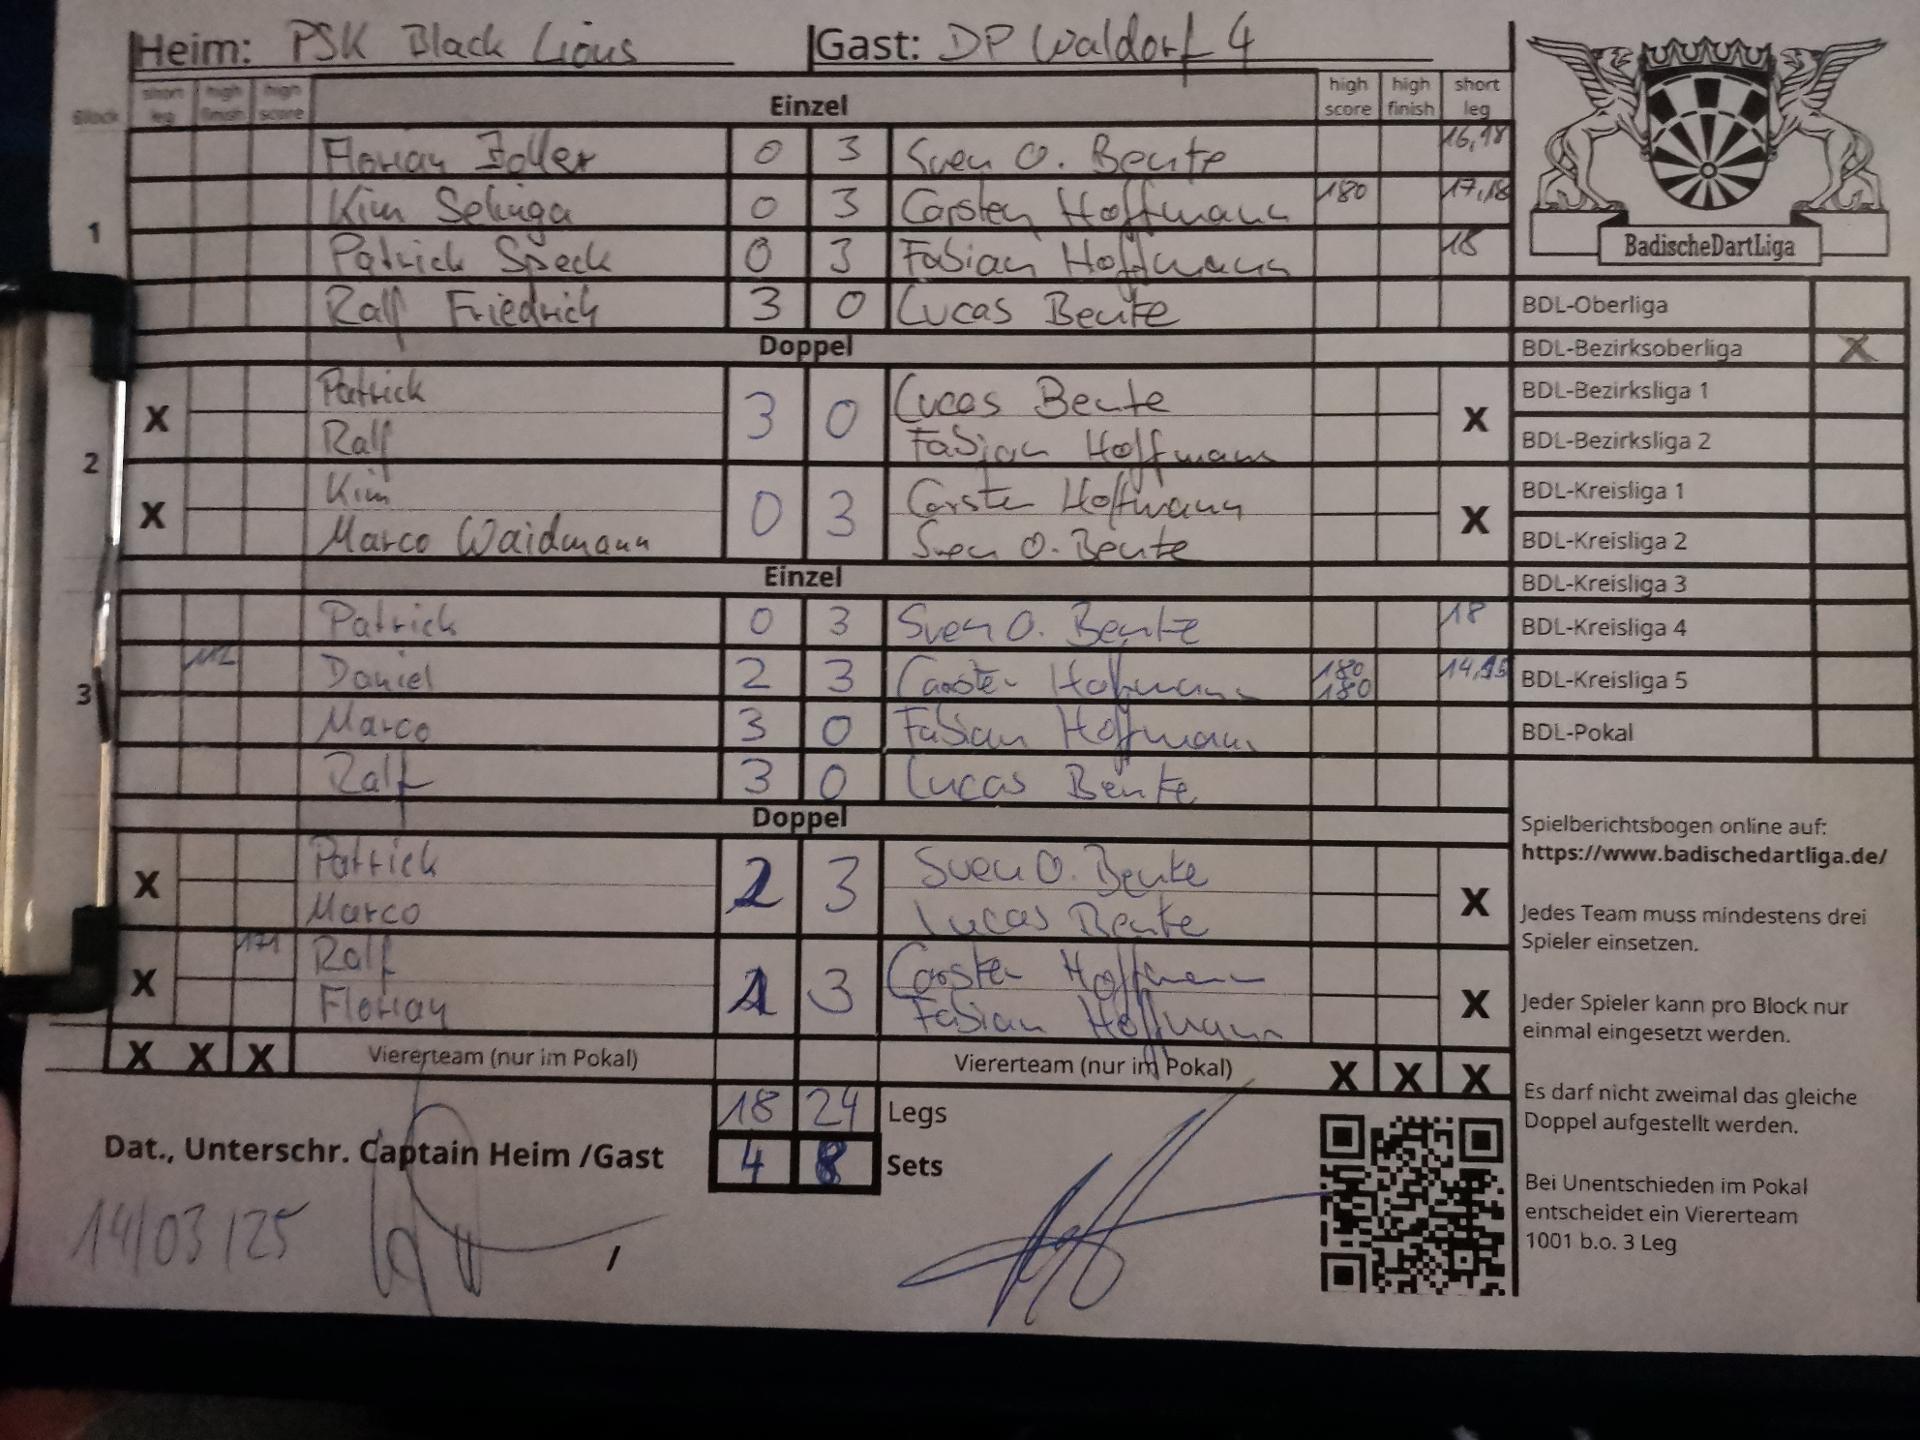 Heim: PSK Black Lions Gast: DP Waldorf 4
Block short leg high finish high score Einzel high score high finish short leg
Florian Idler 0 3 Sven O. Bente 16,18
1 Kim Selinga 0 3 Carsten Hoffmann 180 17,18
Patrick Speck 0 3 Fabian Hoffmann 18
Ralf Friedrich 3 0 Lucas Bente
Doppel
2
X Patrick 3 0 Lucas Bente X
Ralf Fabian Hoffmann
X Kim 0 3 Carsten Hoffmann X
Marco Waidmann Sven O. Bente
Einzel
3
Patrick 0 3 Sven O. Bente 18
112 Daniel 2 3 Carsten Hoffmann 180 14,15
180
Marco 3 0 Fabian Hoffmann
Ralf 3 0 Lucas Bente
Doppel
X Patrick 2 3 Sven O. Bente X
Marco Lucas Bente
X 171 Ralf 1 3 Carsten Hoffmann X
Florian Fabian Hoffmann
X X X Viererteam (nur im Pokal) Viererteam (nur im Pokal) X X X
18 24 Legs
Dat., Unterschr. Captain Heim /Gast 4 8 Sets
14/03/25
BadischeDartLiga
BDL-Oberliga
BDL-Bezirksoberliga X
BDL-Bezirksliga 1
BDL-Bezirksliga 2
BDL-Kreisliga 1
BDL-Kreisliga 2
BDL-Kreisliga 3
BDL-Kreisliga 4
BDL-Kreisliga 5
BDL-Pokal
Spielberichtsbogen online auf:
https://www.badischedartliga.de/
Jedes Team muss mindestens drei
Spieler einsetzen.
Jeder Spieler kann pro Block nur
einmal eingesetzt werden.
Es darf nicht zweimal das gleiche
Doppel aufgestellt werden.
Bei Unentschieden im Pokal
entscheidet ein Viererteam
1001 b.o. 3 Leg